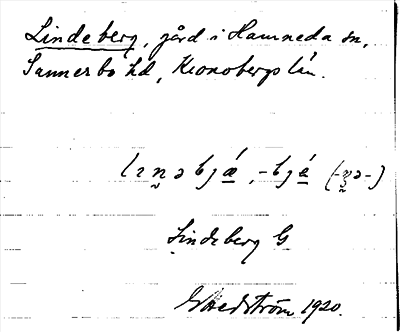 Lindeberg, gård i Hamneda sn,
Sunnerbo hd, Kronobergs län.
lɪn̰əbjǽ, -bjé (-n̰ə-)
Lindeberg G
G Hedström 1920.